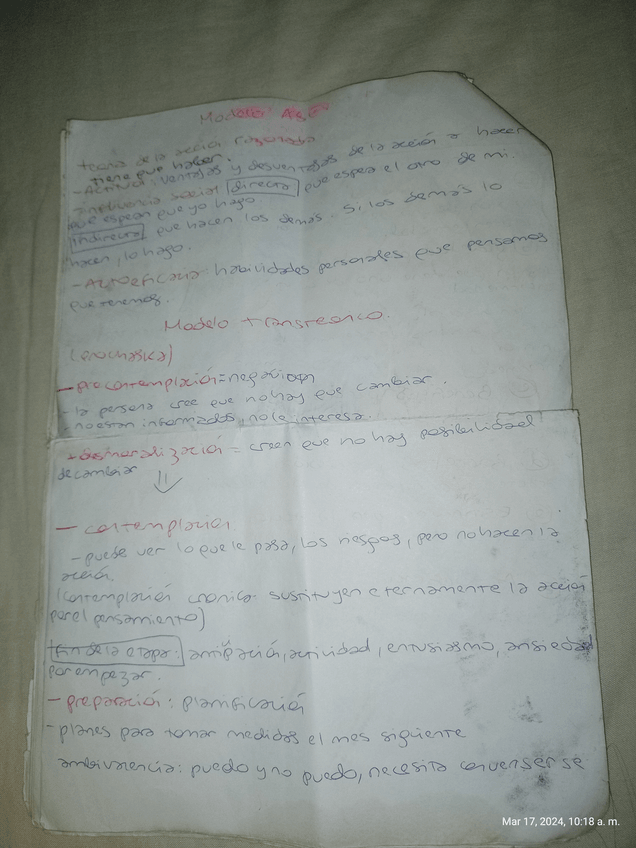 Modelo: ASE
teoría de la acción razonada
tiene que haber.
- Actitud: ventajas y desventajas de la acción a hacer
- Influencia social directa que espera el otro de mi.
que esperan que yo hago.
indirecta que hacen los demas. Si los demás lo
hacen, lo hago.
- Autoeficacia: habilidades personales que pensamos
que tenemos.
Modelo transteorico.
(prochaska)
- precontemplación = negación
- la persona cree que no hay que cambiar.
- no estan informados, no le interesa.
- desmoralización = creen que no hay posibilidad
de cambiar
- contemplación.
- puede ver lo que le pasa, los riesgos, pero no hacen la
acción.
(contemplación cronica: sustituyen eternamente la acción
por el pensamiento)
Fin de la etapa: antipación, actividad, entusiasmo, ansiedad
por empezar.
- preparación: planificación
- planes para tomar medidas el mes siguiente
ambivalencia: puedo y no puedo, necesita convenserse
Mar 17, 2024, 10:18 a. m.